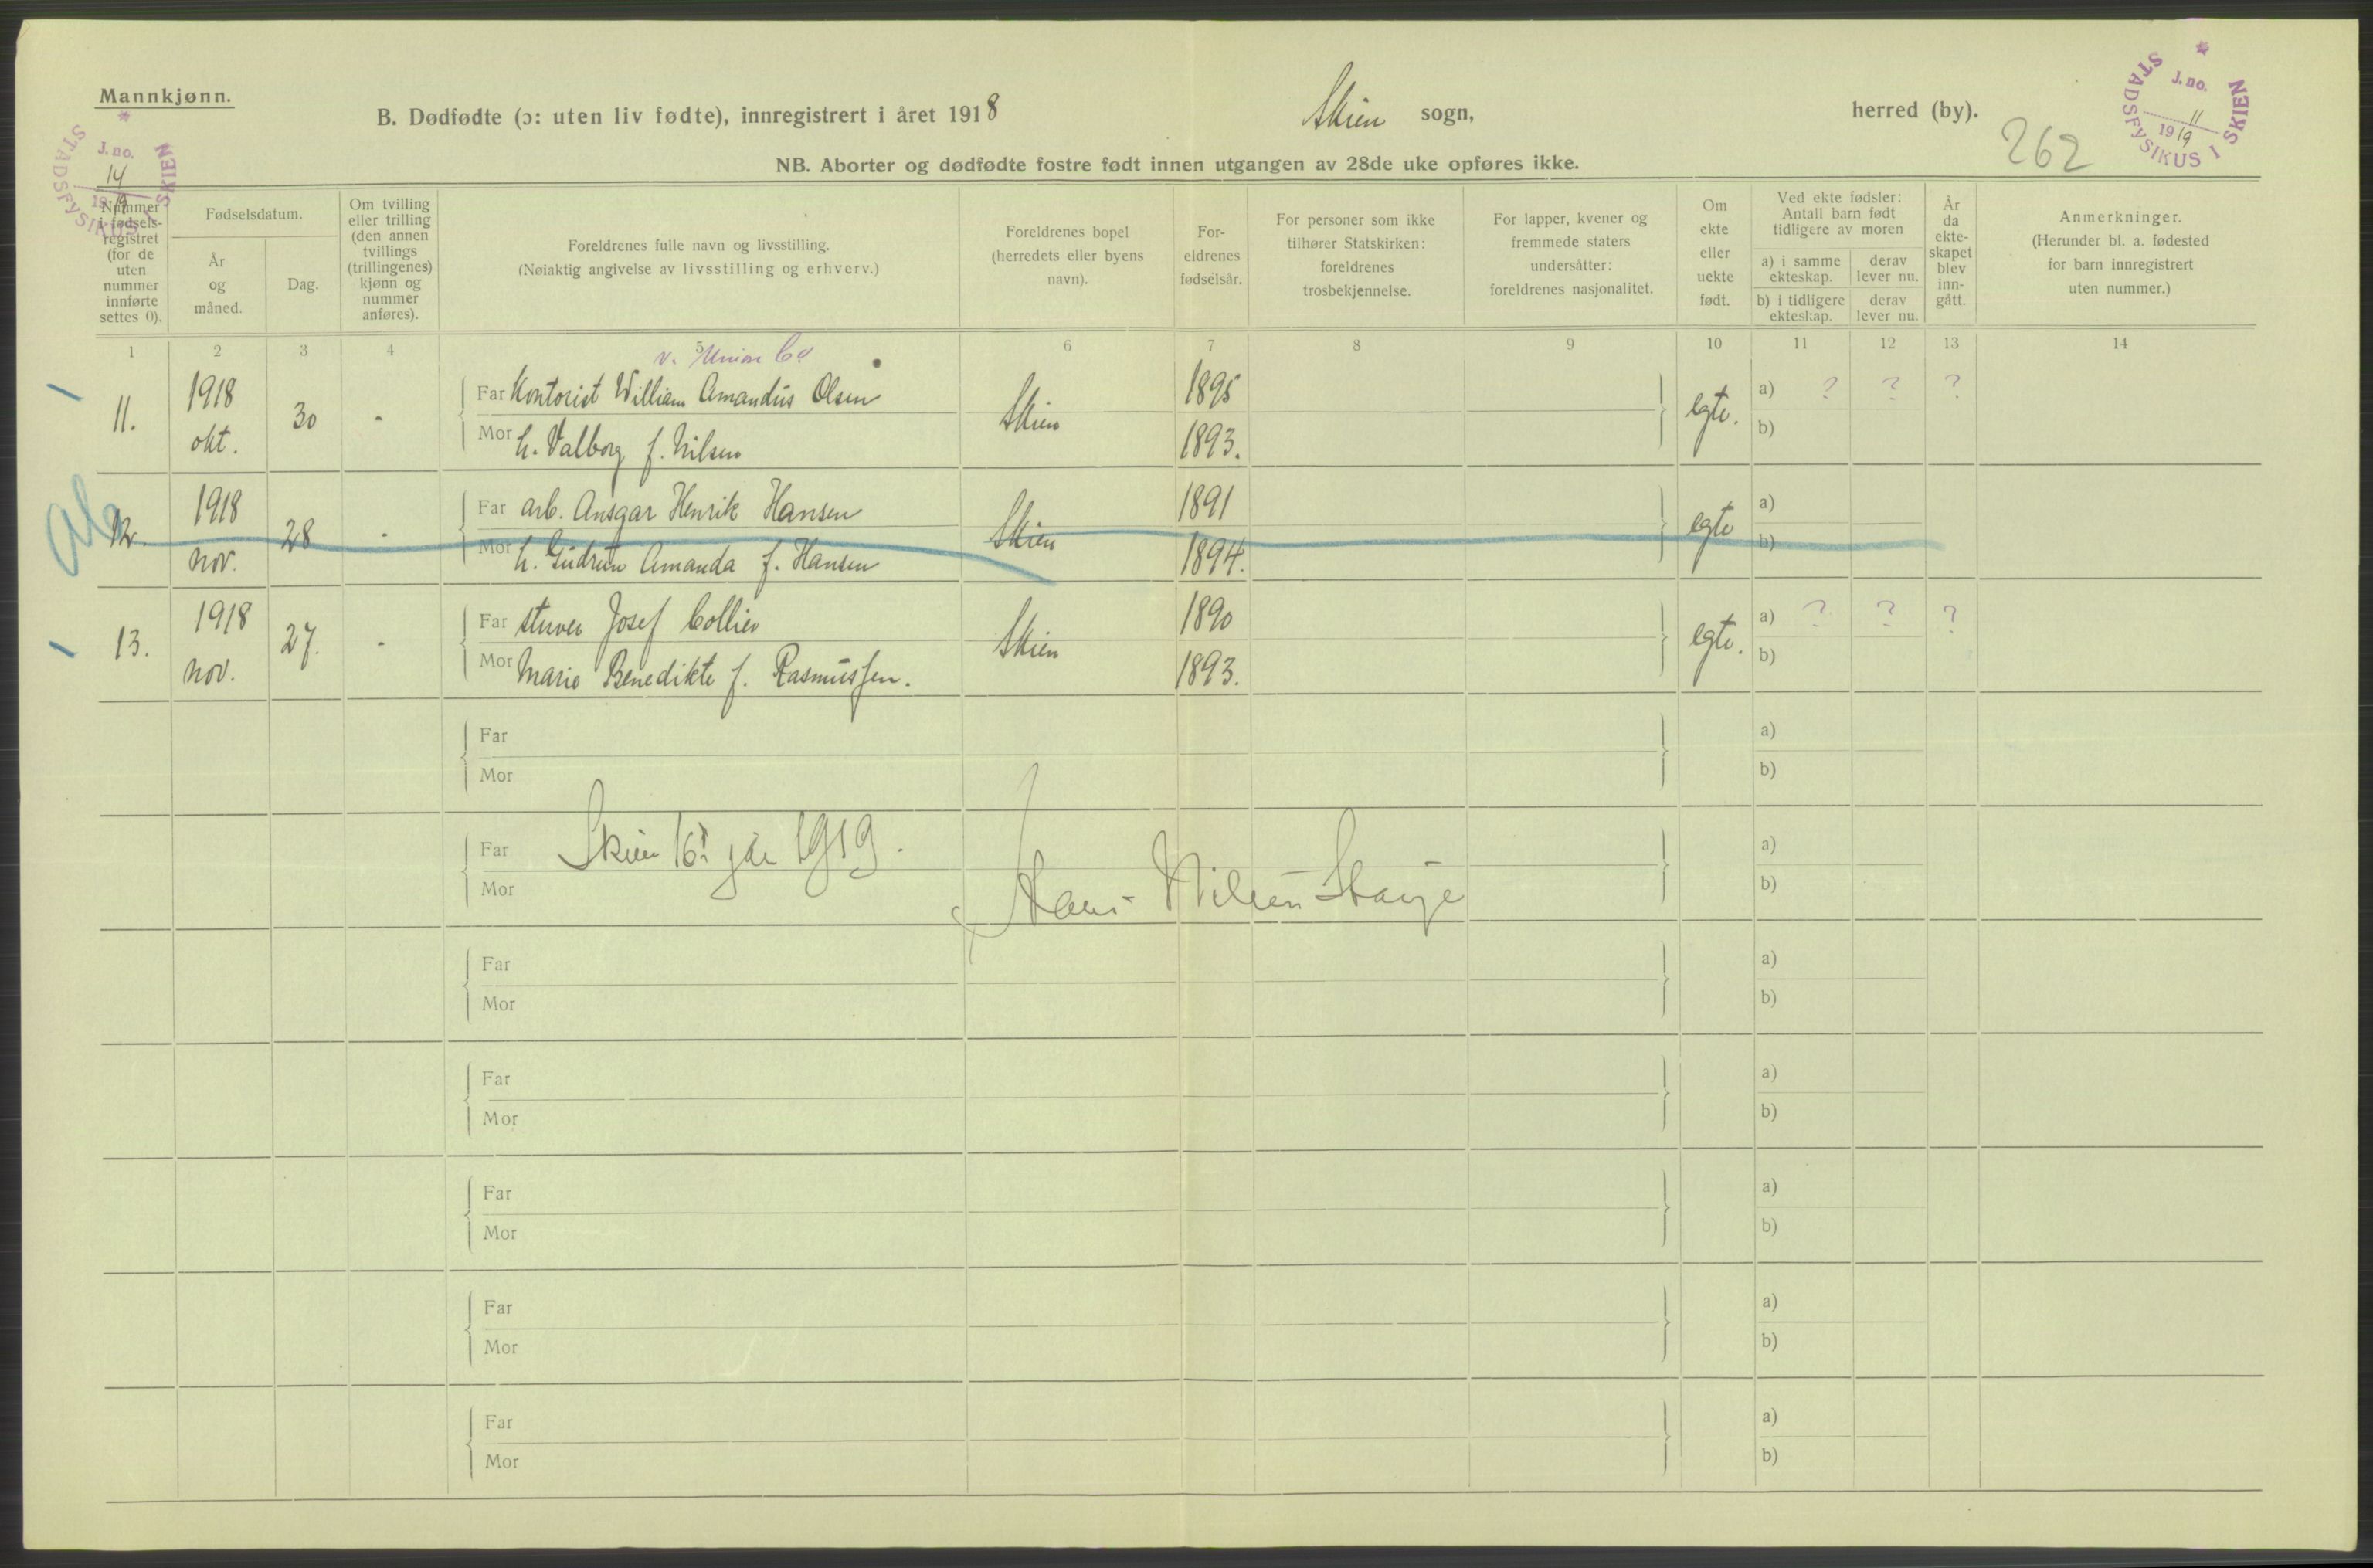 Mannkjønn.
B. Dødfødte (ɔ: uten liv fødte), innregistrert i året 1918 Skien sogn, herred (by).
262
NB. Aborter og dødfødte fostre født innen utgangen av 28de uke opføres ikke.
STADSFYSIKUS I SKIEN
J. no.
14
1919
STADSFYSIKUS I SKIEN
J. no.
11
1919
Nummer i fødsels-registret (for de uten nummer innførte settes 0).
Fødselsdatum.
År og måned.
Dag.
Om tvilling eller trilling (den annen tvillings (trillingenes) kjønn og nummer anføres).
Foreldrenes fulle navn og livsstilling.
(Nøiaktig angivelse av livsstilling og erhverv.)
Foreldrenes bopel (herredets eller byens navn).
For-eldrenes fødselsår.
For personer som ikke tilhører Statskirken: foreldrenes trosbekjennelse.
For lapper, kvener og fremmede staters undersåtter: foreldrenes nasjonalitet.
Om ekte eller uekte født.
Ved ekte fødsler: Antall barn født tidligere av moren
a) i samme ekteskap.
derav lever nu.
b) i tidligere ekteskap.
derav lever nu.
År da ekte-skapet blev inn-gått.
Anmerkninger.
(Herunder bl. a. fødested for barn innregistrert uten nummer.)
1 2 3 4 5 6 7 8 9 10 11 12 13 14
v. Union Co
11. 1918 okt. 30 -
Far Kontorist William Amandus Olsen Skien 1895 egte. a) ? ? ?
Mor h. Valborg f. Nilsen 1893. b)
12. 1918 nov. 28 -
Far arb. Ansgar Henrik Hansen Skien 1891 egte a)
Mor h. Gudrun Amanda f. Hansen 1894. b)
13. 1918 nov. 27. -
Far stuver Josef Collier Skien 1890 egte. a) ? ? ?
Mor Marie Benedikte f. Rasmussen. 1893. b)
Far a)
Mor b)
Far Skien 16 jan 1919. a)
Mor Hans Nilsen Hauge b)
Far a)
Mor b)
Far a)
Mor b)
Far a)
Mor b)
Far a)
Mor b)
Far a)
Mor b)